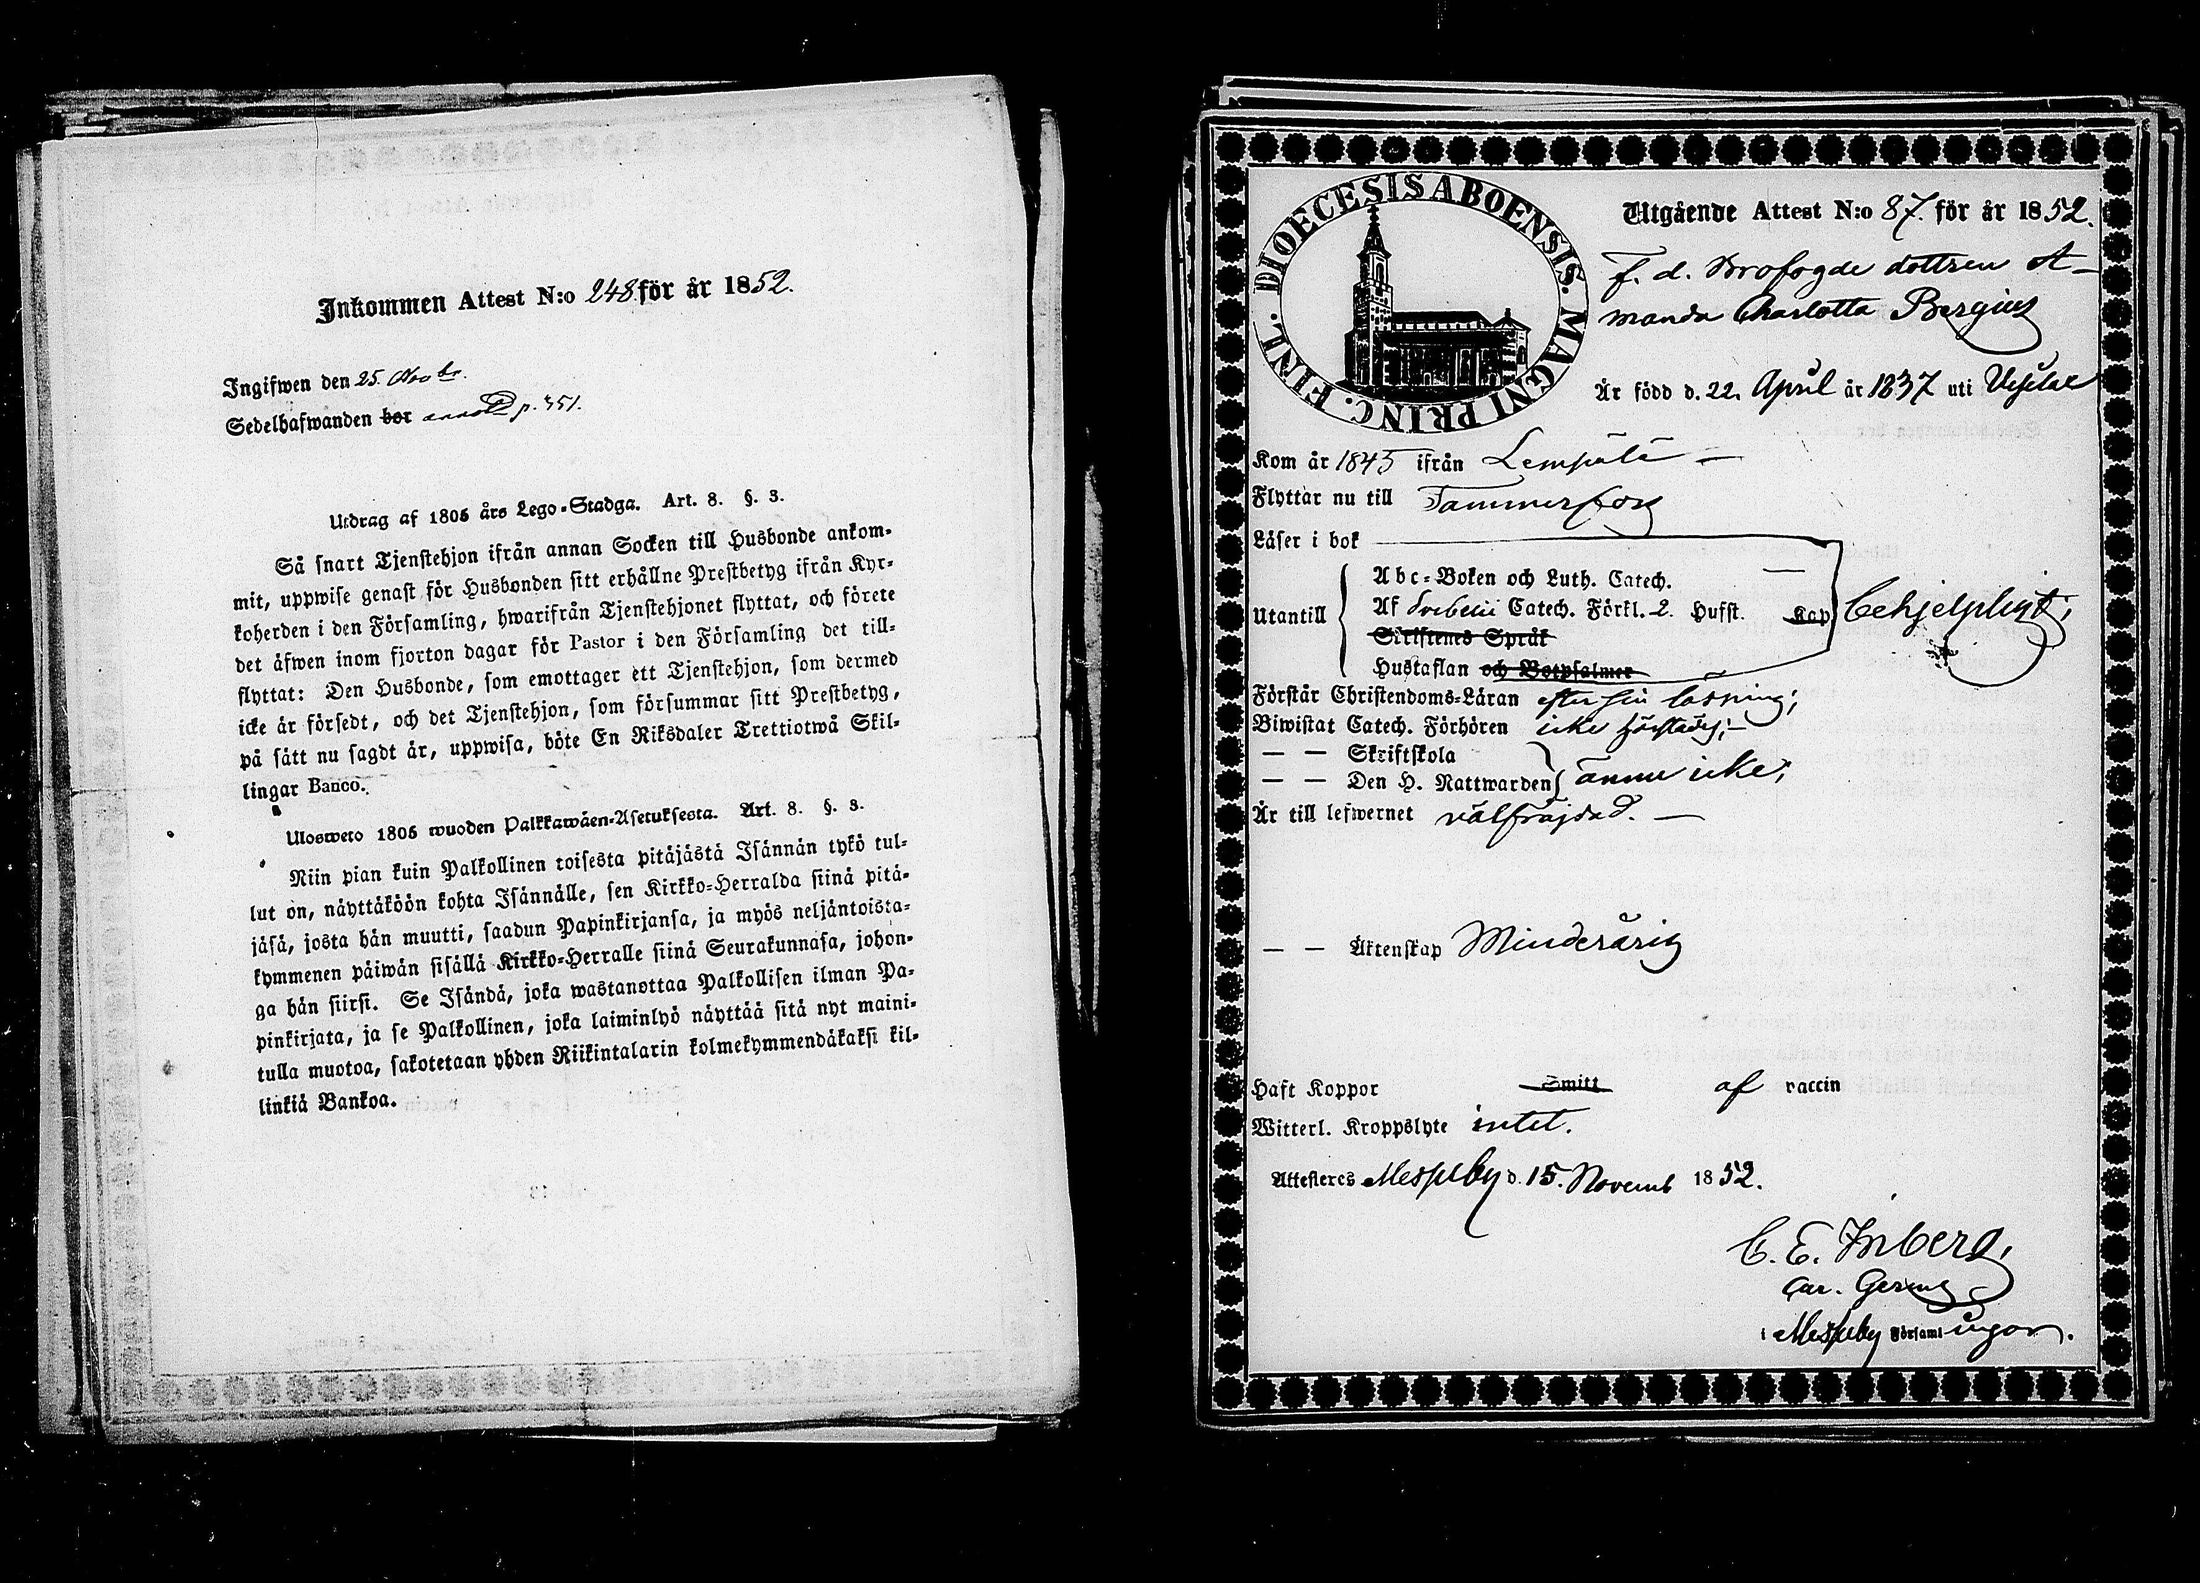 Inkommen Attest N:o 248. för år 1852.
Ingifwen den 25. Novbr.
Sedelhafwanden bor p. 351.
Utdrag af 1805 års Lego-Stadga. Art. 8. §. 3.
Så snart Tjenstehjon ifrån annan Socken till Husbonde ankom-
mit, uppwise genast för Husbonden sitt erhållne Prestbetyg ifrån Kyr-
koherden i den Församling, hwarifrån Tjenstehjonet flyttat, och förete
det äfwen inom fjorton dagar för Pastor i den Församling det till-
flyttat: Den Husbonde, som emottager ett Tjenstehjon, som dermed
icke är försedt, och det Tjenstehjon, som försummar sitt Prestbetyg,
på sätt nu sagdt är, uppwisa, böte En Riksdaler Trettiotwå Skil-
lingar Banco.
Ulosweto 1805 wuoden Palkkawäen-Asetuksesta. Art. 8. §. 3.
Niin pian kuin Palkollinen toisesta pitäjästä Isännän tykö tul-
lut on, näyttäköön kohta Isännälle, sen Kirkko-Herralda siinä pitä-
jäsä, josta hän muutti, saadun Papinkirjansa, ja myös neljäntoista-
kymmenen päiwän sisällä Kirkko-Herralle siinä Seurakunnasa, johon-
ga hän siirsi. Se Isändä, joka wastanottaa Palkollisen ilman Pa-
pinkirjata, ja se Palkollinen, joka laiminlyö näyttää sitä nyt maini-
tulla muotoa, sakotetaan yhden Riikintalarin kolmekymmendäkaksi kil-
linkiä Bankoa.
DIOECESIS ABOENSIS. MAGNI PRINC. FINL.
Utgående Attest N:o 87. för år 1852.
F. d. Brofogde dottren A-
manda Charlotta Bergius
Är född d. 22. April år 1837 uti Vesilax
Kom år 1845 ifrån Lempälä —
Flyttar nu till Tammerfors
Läser i bok
Abc-Boken och Luth. Catech. —
Utantill Af Svebelii Catech. Förkl. 2. Hufst. Kap behjelpligt;
Skriftenes Språk
Hustaflan och Botpsalmer
Förstår Christendoms-Läran efter sin läsning;
Biwistat Catech. Förhören icke försedd; —
— — Skriftskola
— — Den H. Nattwarden ännu icke;
Är till lefwernet välfräjdad. —
— — Äktenskap Minderårig
Haft Koppor Smitt af vaccin
Witterl. Kroppslyte intet.
Attesteres Messuby d. 15. Novemb 1852.
C. E. Inberg,
Cur. Gerens
i Messuby Församlingar.